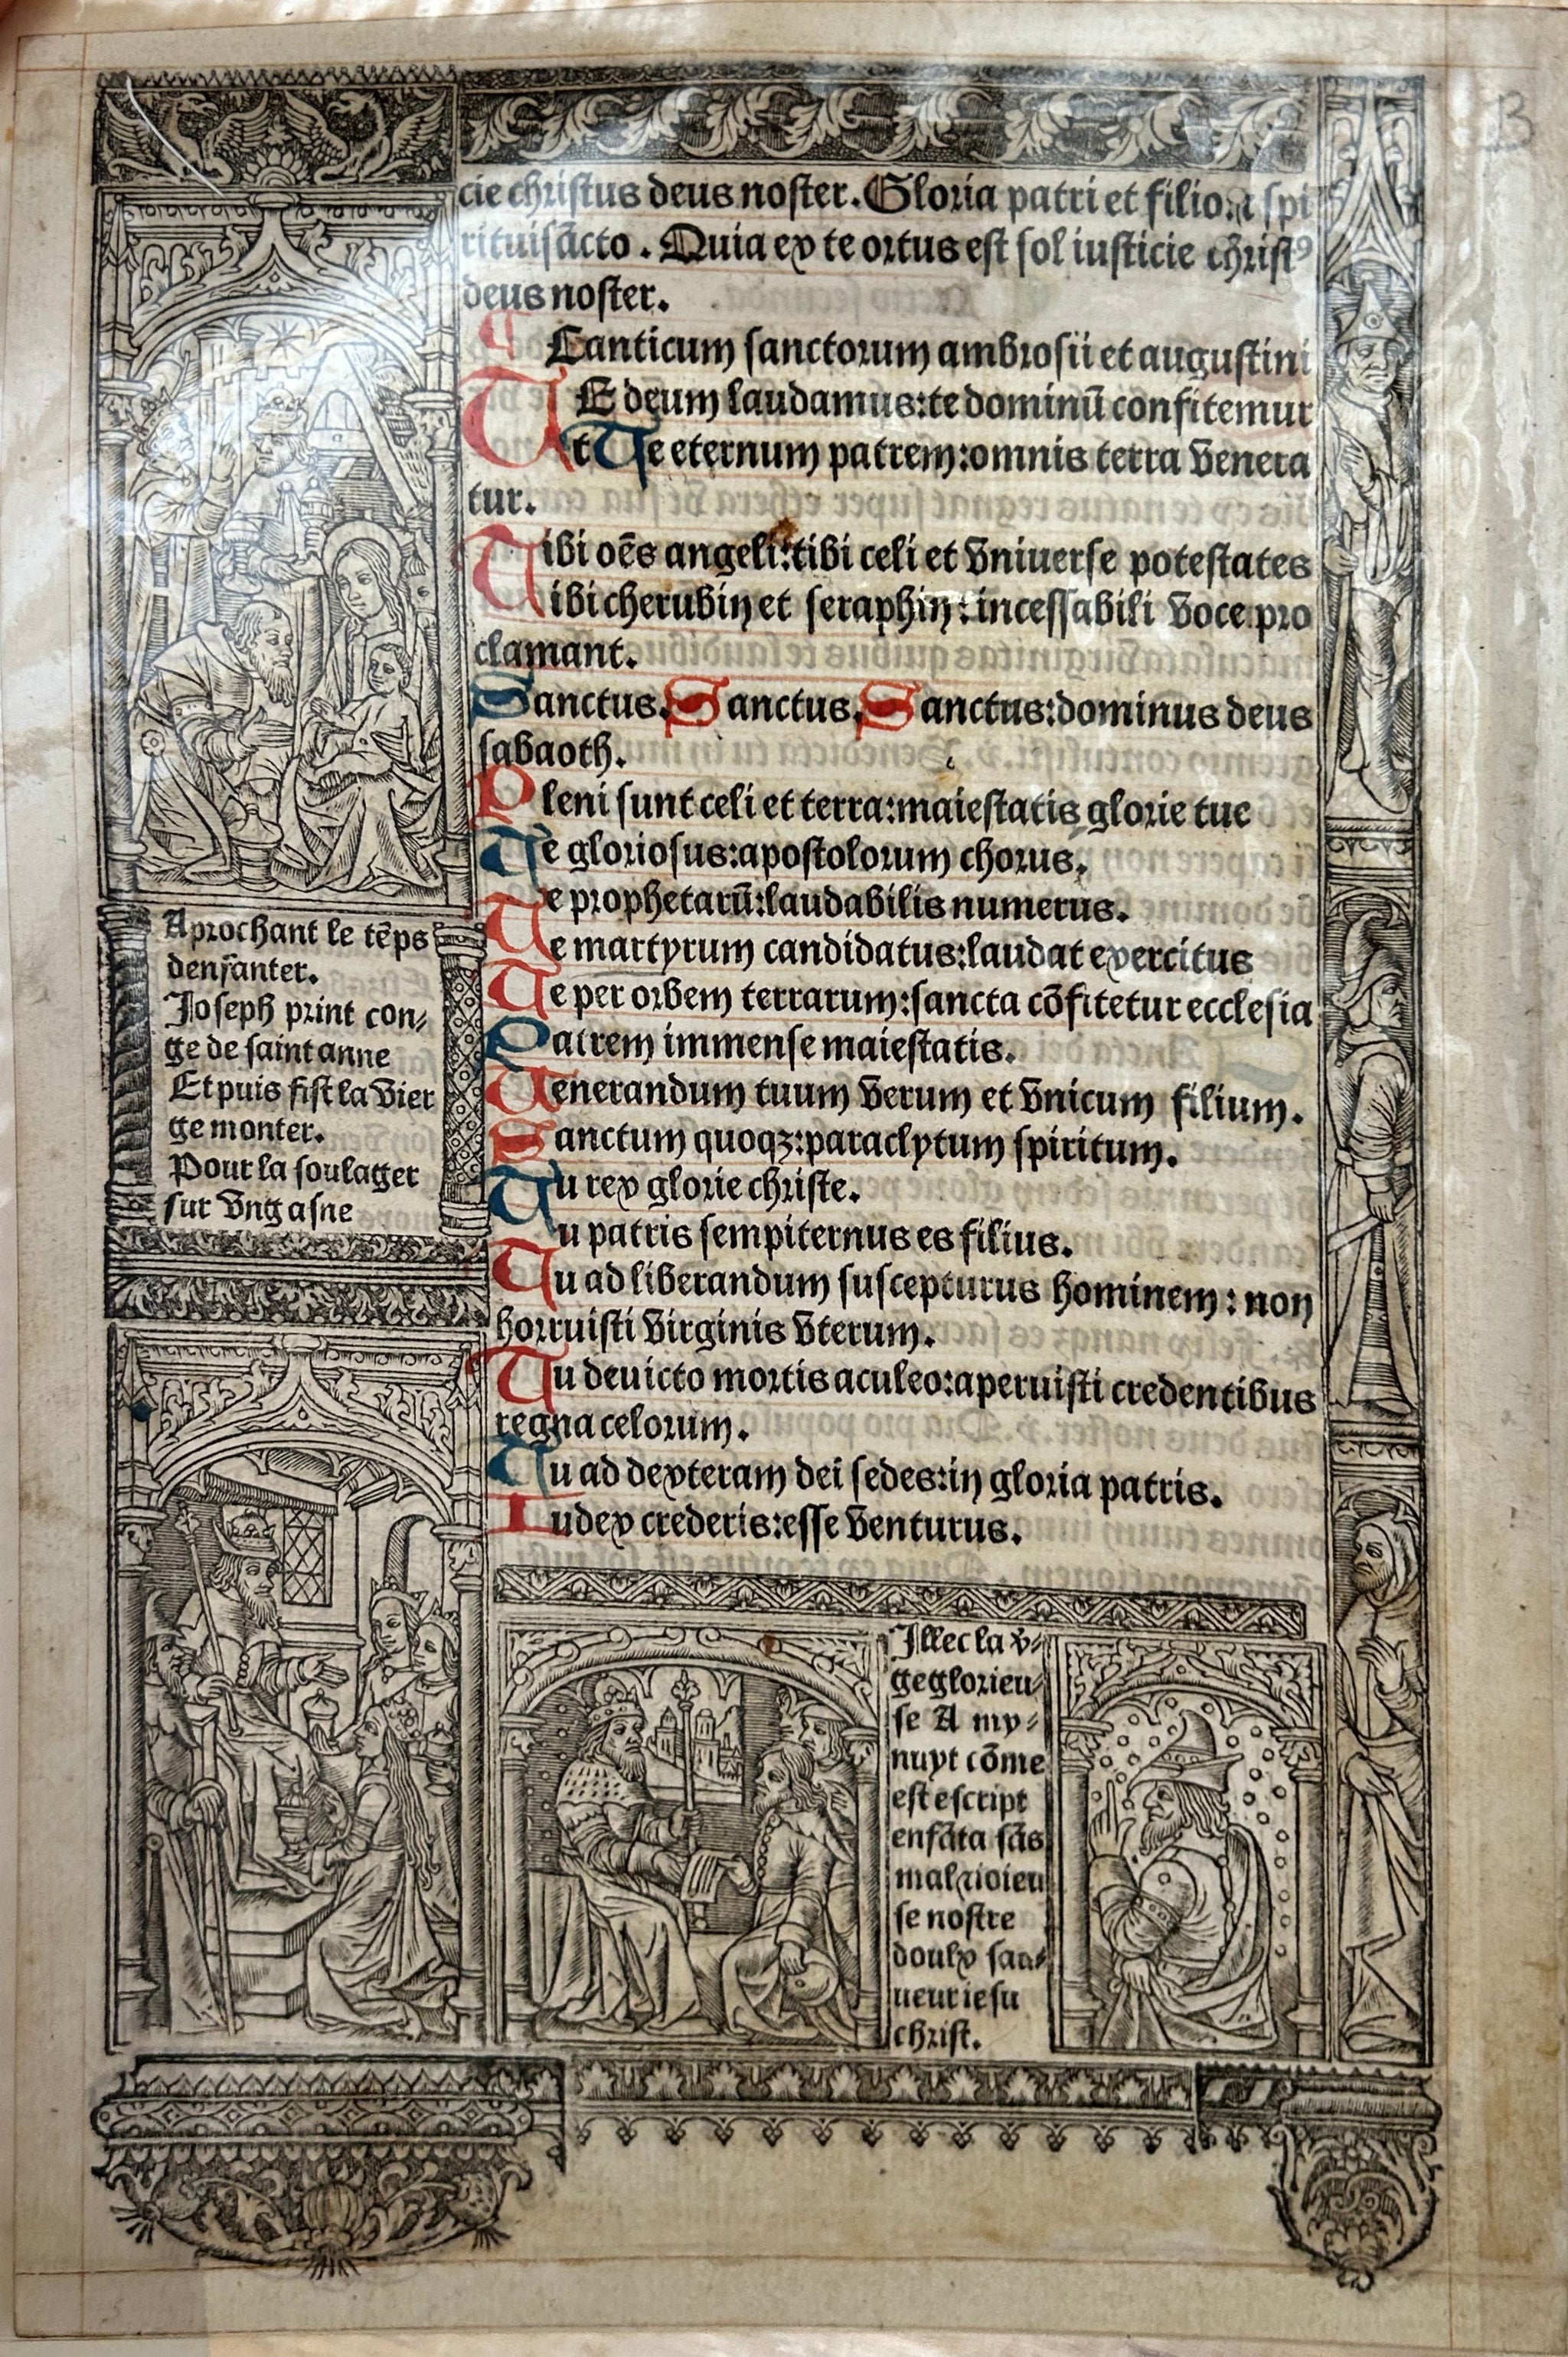 cie christus deus noster. Gloria patri et filio. ⁊ spi
rituisācto. Quia ex te ortus est sol iusticie christꝰ
deus noster.
Canticum sanctorum ambrosii et augustini
TE deum laudamus: te dominū confitemur
Te eternum patrem: omnis terra venera
tur.
Tibi oēs angeli: tibi celi et vniuerse potestates
Tibi cherubin et seraphin: incessabili voce pro
clamant.
Sanctus. Sanctus. Sanctus: dominus deus
sabaoth.
Pleni sunt celi et terra: maiestatis glorie tue
Te gloriosus: apostolorum chorus.
Te prophetarū: laudabilis numerus.
Te martyrum candidatus: laudat exercitus
Te per orbem terrarum: sancta cōfitetur ecclesia
Patrem immense maiestatis.
Venerandum tuum verum et vnicum filium.
Sanctum quoqꝫ: paraclytum spiritum.
Tu rex glorie christe.
Tu patris sempiternus es filius.
Tu ad liberandum suscepturus hominem: non
horruisti virginis vterum.
Tu deuicto mortis aculeo: aperuisti credentibus
regna celorum.
Tu ad dexteram dei sedes: in gloria patris.
Iudex crederis: esse venturus.
Aprochant le tēps
denfanter.
Joseph print con-
ge de saint anne
Et puis fist la vier
ge monter.
Pour la soulager
sur vng asne
Illec la v-
ge glorieu-
se A my-
nuyt cōme
est escript
enfāta sās
mal ⁊ ioieu
se nostre
doulx sau-
ueur iesu
christ.
B